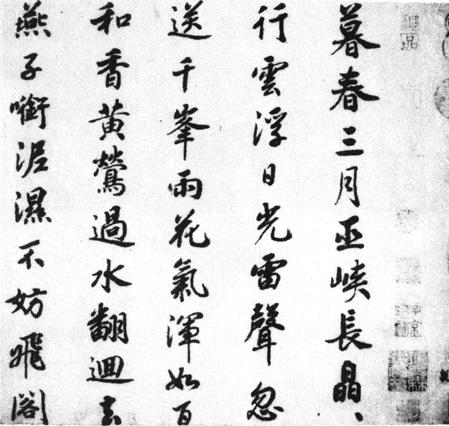 暮春三月巫峽長晶、
行雲浮日光雷聲忽
送千峯雨花氣渾如百
和香黄鶯過水翻迴去
燕子啣泥濕不妨飛閣